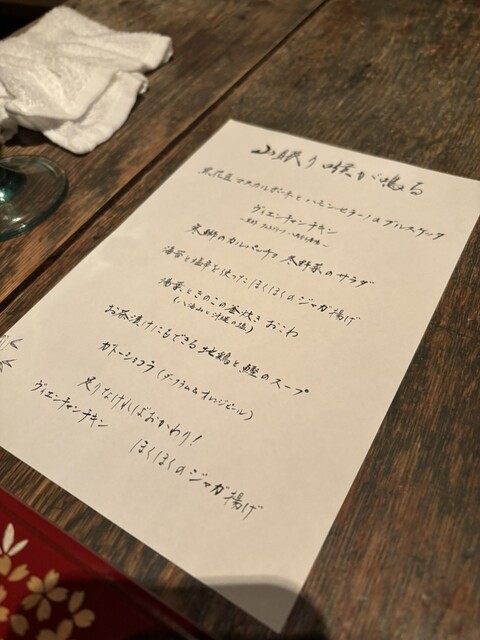 山眠り喉が鳴る
黒花豆マスカルポーネといちじくセミドライのブルスケッタ
ヴィエンチャンチキン
寒鰤のカルパッチョ 冬野菜のサラダ
海苔と塩辛を使ったほくほくのジャガ揚げ
湯葉ときのこの釜炊きおこわ
お茶漬けにもできる地鶏と鰹のスープ
ガトーショコラ(ダークラム&オレンジピール)
足りなければおかわり!
ヴィエンチャンチキン
ほくほくのジャガ揚げ